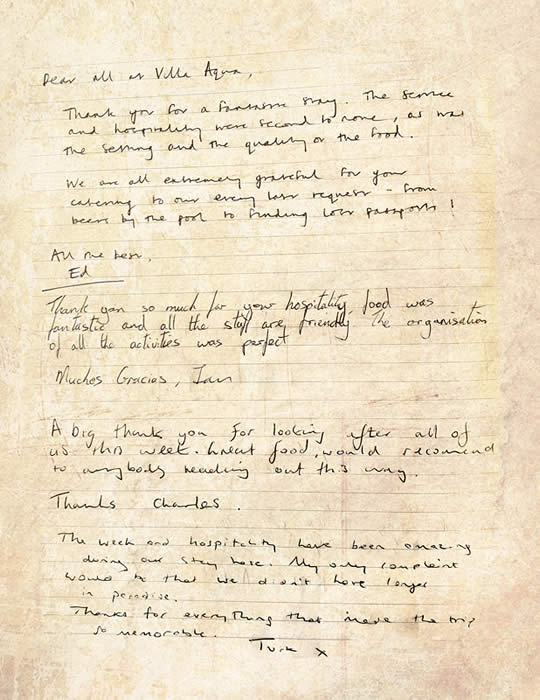 Dear all at Villa Aqua,
Thank you for a fantastic stay. The service
and hospitality were second to none, as was
the setting and the quality of the food.
We are all extremely grateful for your
catering to our every last request - from
beers by the pool to finding lost passports!
All the best,
Ed
Thank you so much for your hospitality, food was
fantastic and all the staff are friendly the organisation
of all the activities was perfect
Muchos Gracias, Ian
A big thank you for looking after all of
us this week. Great food, would recomend
to anybody heading out this way.
Thanks Charles.
The week and hospitality have been amazing
during our stay here. My only complaint
would be that we didn't have longer
in paradise.
Thanks for everything that made the trip
so memorable.
x